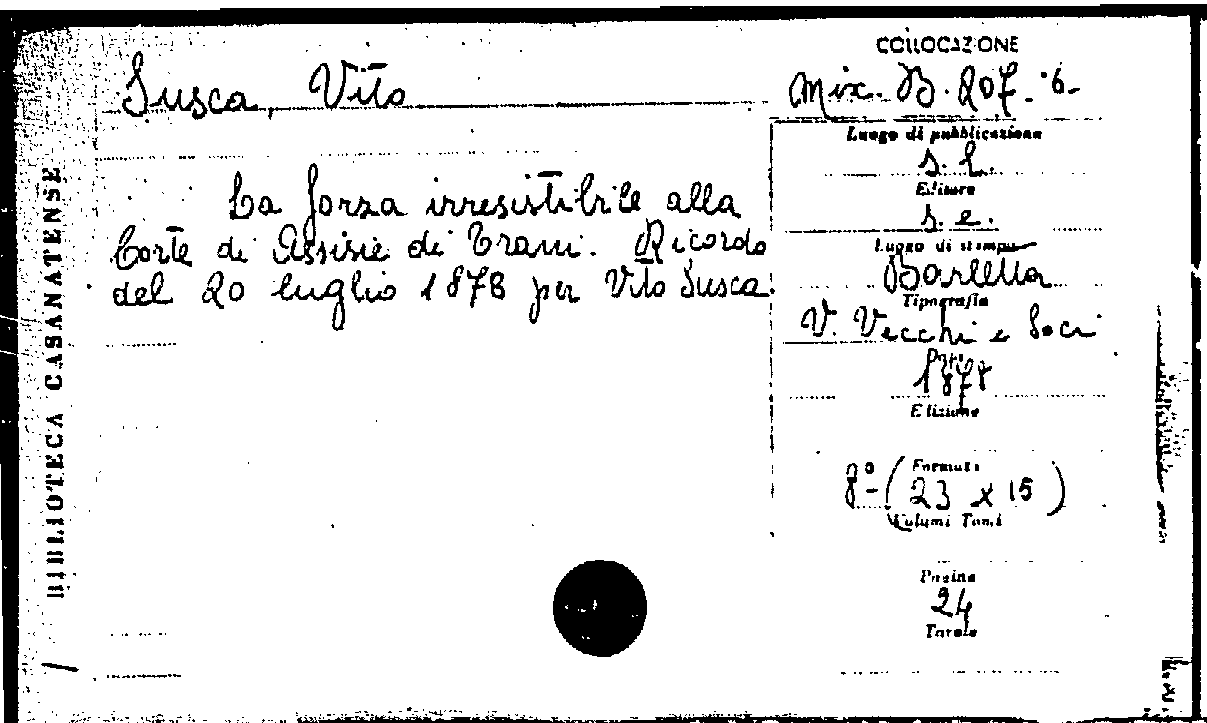 BIBLIOTECA CASANATENSE
Susca, Vito
La forza irresistibile alla
Corte di Assisie di Trani. Ricordo
del 20 luglio 1878 per Vito Susca.
COLLOCAZIONE
Misc. B. 207. 6.
Luogo di pubblicazione
s. l.
Editore
s. e.
Luogo di stampa
Barletta
Tipografia
V. Vecchi e Soci
Data
1878
Edizione
Formato
8º (23 x 15)
Volumi Tomi
Pagine
24
Tavole